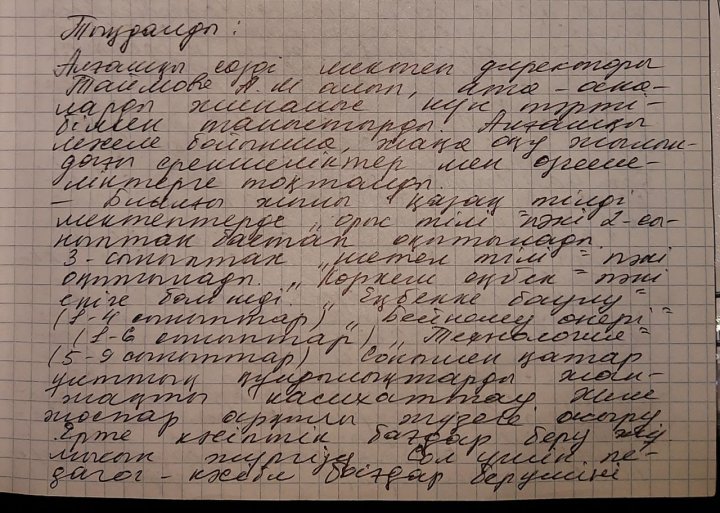 Тыңдалды:
Алғашқы сөзді мектеп директоры
Таймова А.М алып, ата-ана-
ларды жиналыс күн тәрті-
бімен таныстырды. Алғашқы
мәселе бойынша, жаңа оқу жылын-
дағы ерекшеліктер мен өзгеше-
ліктерге тоқталды.
– Биылғы жылы қазақ тілді
мектептерде „орыс тілі" пәні 2-сы-
ныптан бастап оқытылады.
3-сыныптан „шетел тілі" пәні
оқытылады. „Көркем еңбек" пәні
екіге бөлінеді. „Еңбекке баулу"
(1-4 сыныптар) „Бейнелеу өнері"
(1-6 сыныптар) „Технология"
(5-9 сыныптар) Сонымен қатар
ұлттық құндылықтарды жан-
жақты насихаттау және
жоспар арқылы жүзеге асыру
Ерте кәсіптік бағдар беру жұ
мысын жүргізу. Ол үшін пе-
дагог-кәсіби бағдар берушіні